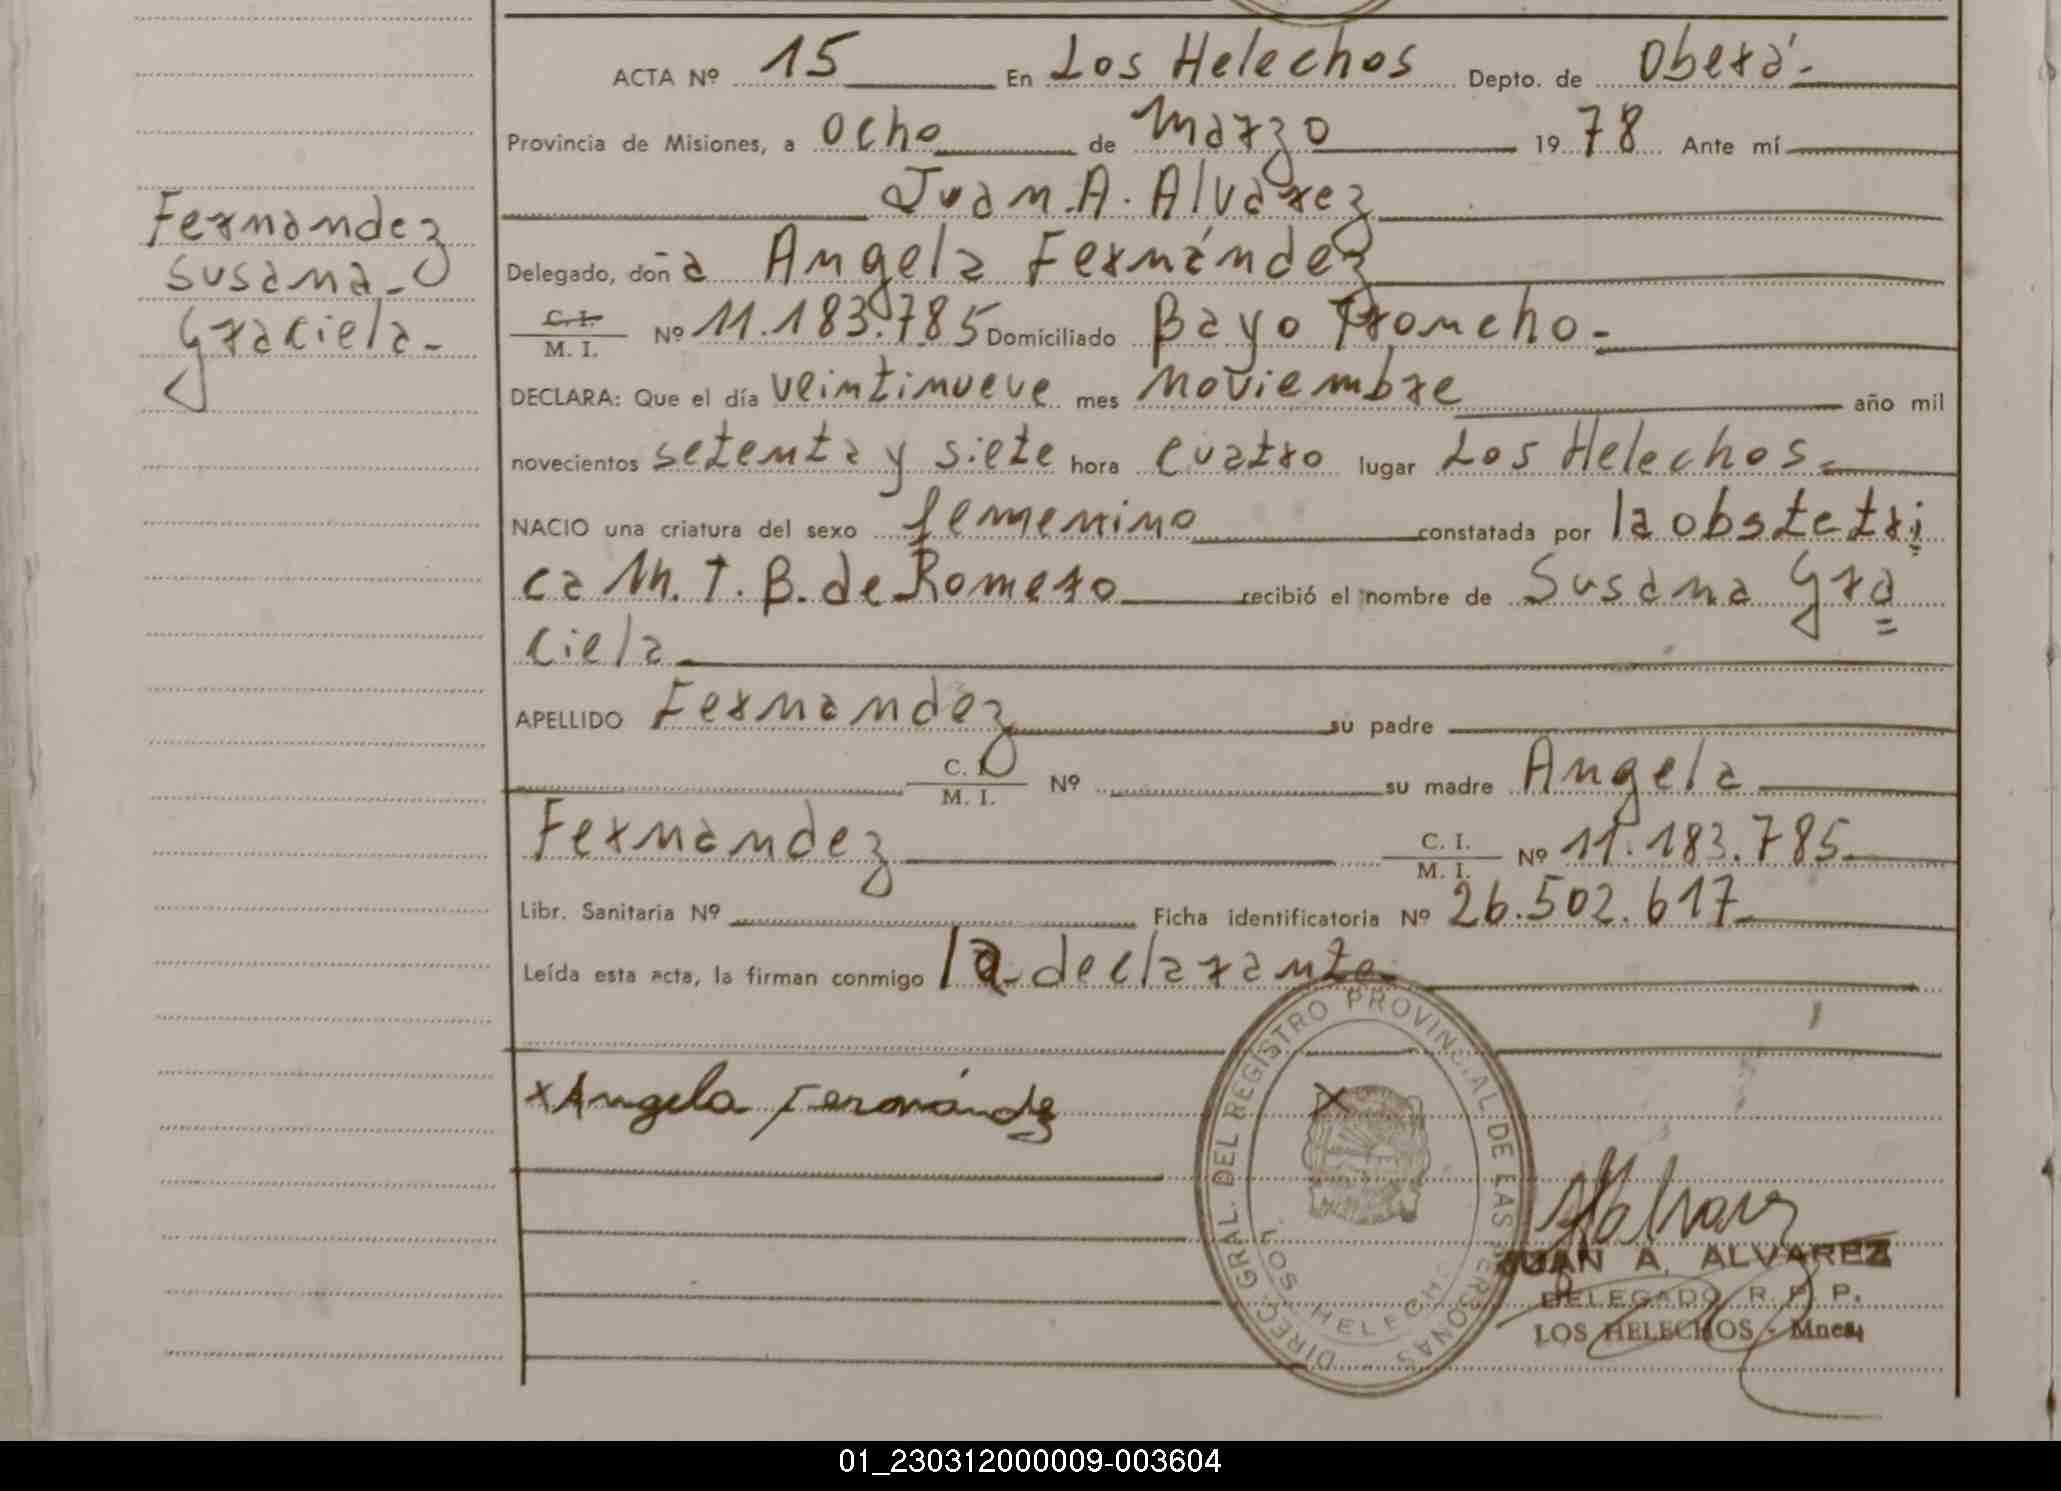 ACTA Nº 15 En Los Helechos Depto. de Oberá-
Provincia de Misiones, a ocho de marzo 1978 Ante mí
Juan A. Alvarez
Fernandez
Susana-
Graciela-
Delegado, doña Angela Fernández
C. I.
M. I. Nº 11.183.785 Domiciliado Bayo Troncho-
DECLARA: Que el día veintinueve mes noviembre año mil
novecientos setenta y siete hora cuatro lugar Los Helechos-
NACIO una criatura del sexo femenino constatada por la obstetri
ca M. T. B. de Romero recibió el nombre de Susana Gra
ciela
APELLIDO Fernandez su padre
C. I.
M. I. Nº su madre Angela
Fernández C. I.
M. I. Nº 11.183.785
Libr. Sanitaria Nº Ficha identificatoria Nº 26.502.617
Leída esta acta, la firman conmigo la declarante
x Angela Fernández
X
DIREC. GRAL. DEL REGISTRO PROVINCIAL DE LAS PERSONAS
LOS HELECH
JUAN A. ALVAREZ
DELEGADO R. P. P.
LOS HELECHOS - Mnes.
01_230312000009-003604